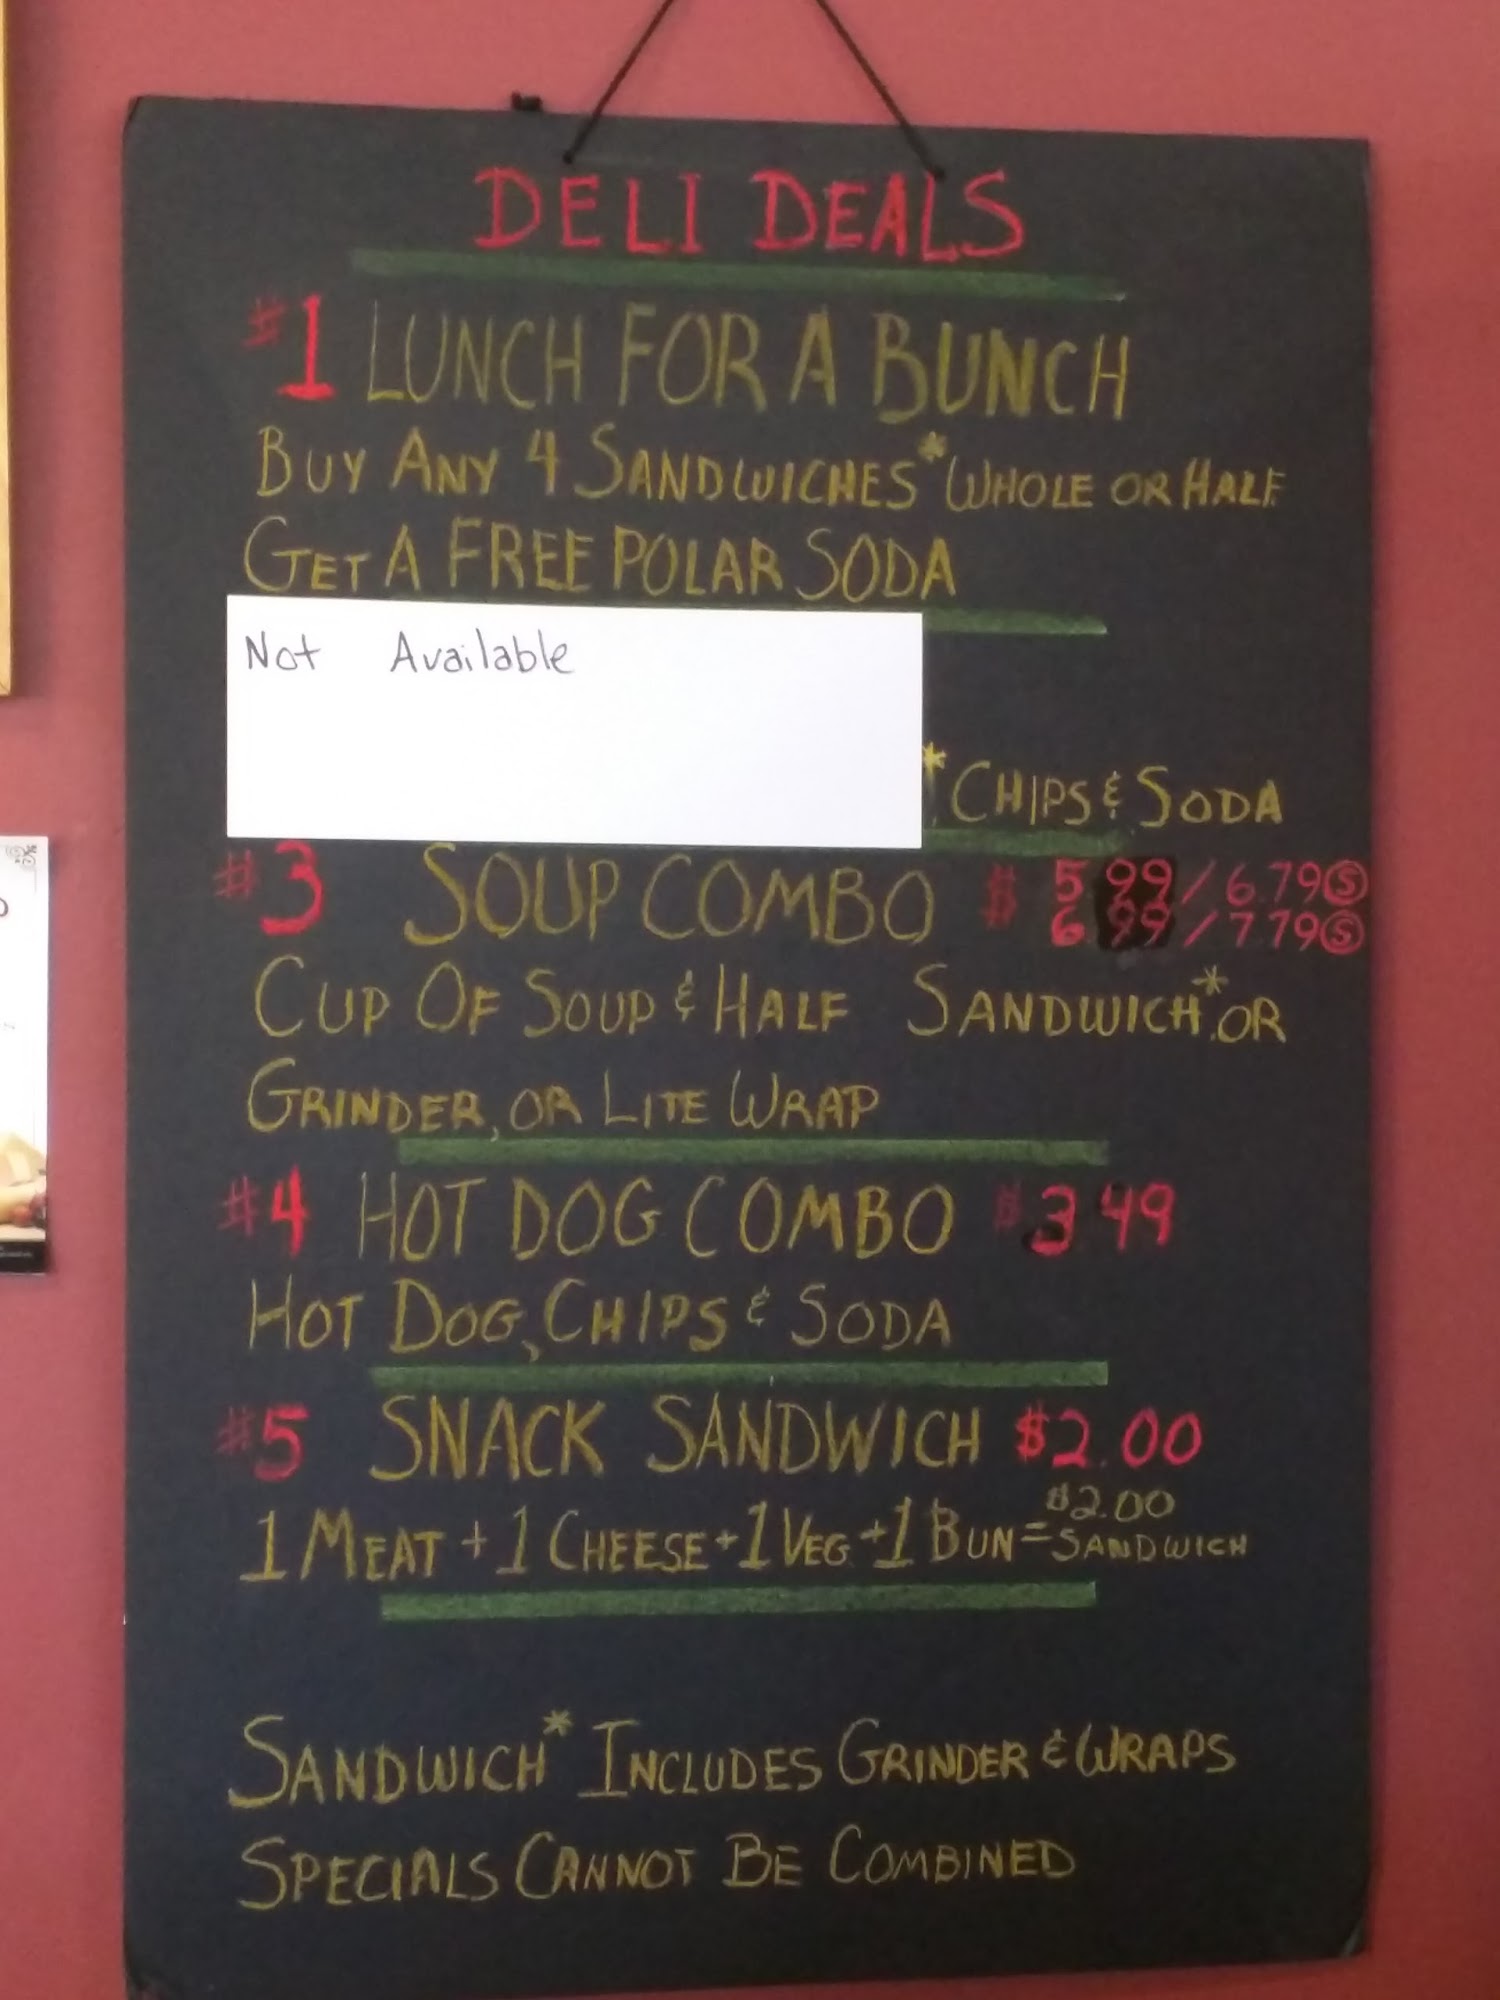 DELI DEALS
#1 LUNCH FOR A BUNCH
BUY ANY 4 SANDWICHES* WHOLE OR HALF
GET A FREE POLAR SODA
Not Available
* CHIPS & SODA
#3 SOUP COMBO $ 5.99/6.79Ⓢ
6.99/7.79Ⓢ
CUP OF SOUP & HALF SANDWICH* OR
GRINDER, OR LITE WRAP
#4 HOT DOG COMBO $3.49
HOT DOG, CHIPS & SODA
#5 SNACK SANDWICH $2.00
1 MEAT + 1 CHEESE + 1 VEG + 1 BUN = $2.00 SANDWICH
SANDWICH* INCLUDES GRINDER & WRAPS
SPECIALS CANNOT BE COMBINED